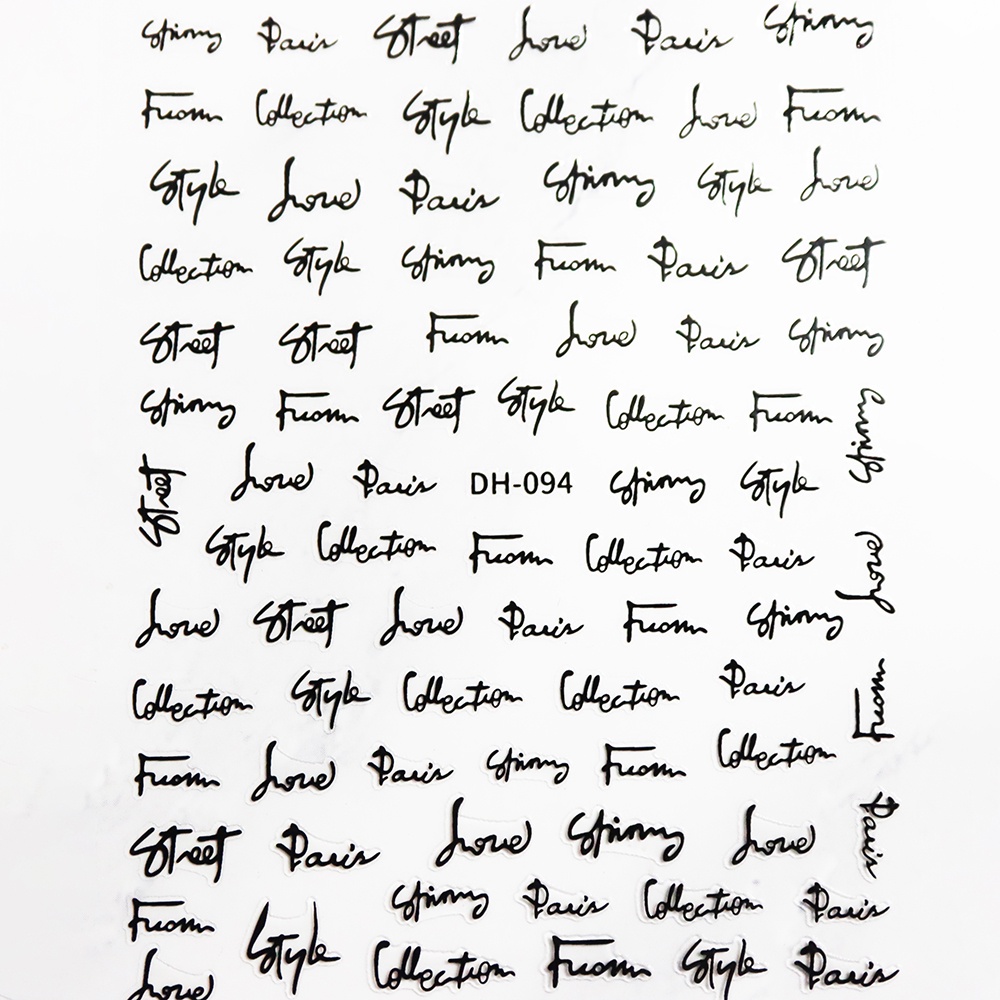 Spring Paris Street Love Paris Spring
From Collection Style Collection Love From
Style Love Paris Spring Style Love
Collection Style Spring From Paris Street
Street Street From Love Paris Spring
Spring From Street Style Collection From
Spring
Street
Love Paris DH-094 Spring Style
Style Collection From Collection Paris
Love
Love Street Love Paris From Spring
Collection Style Collection Collection Paris
From
From Love Paris Spring From Collection
Street Paris Love Spring Love
Paris
From Spring Paris Collection Paris
Love Style Collection From Style Paris